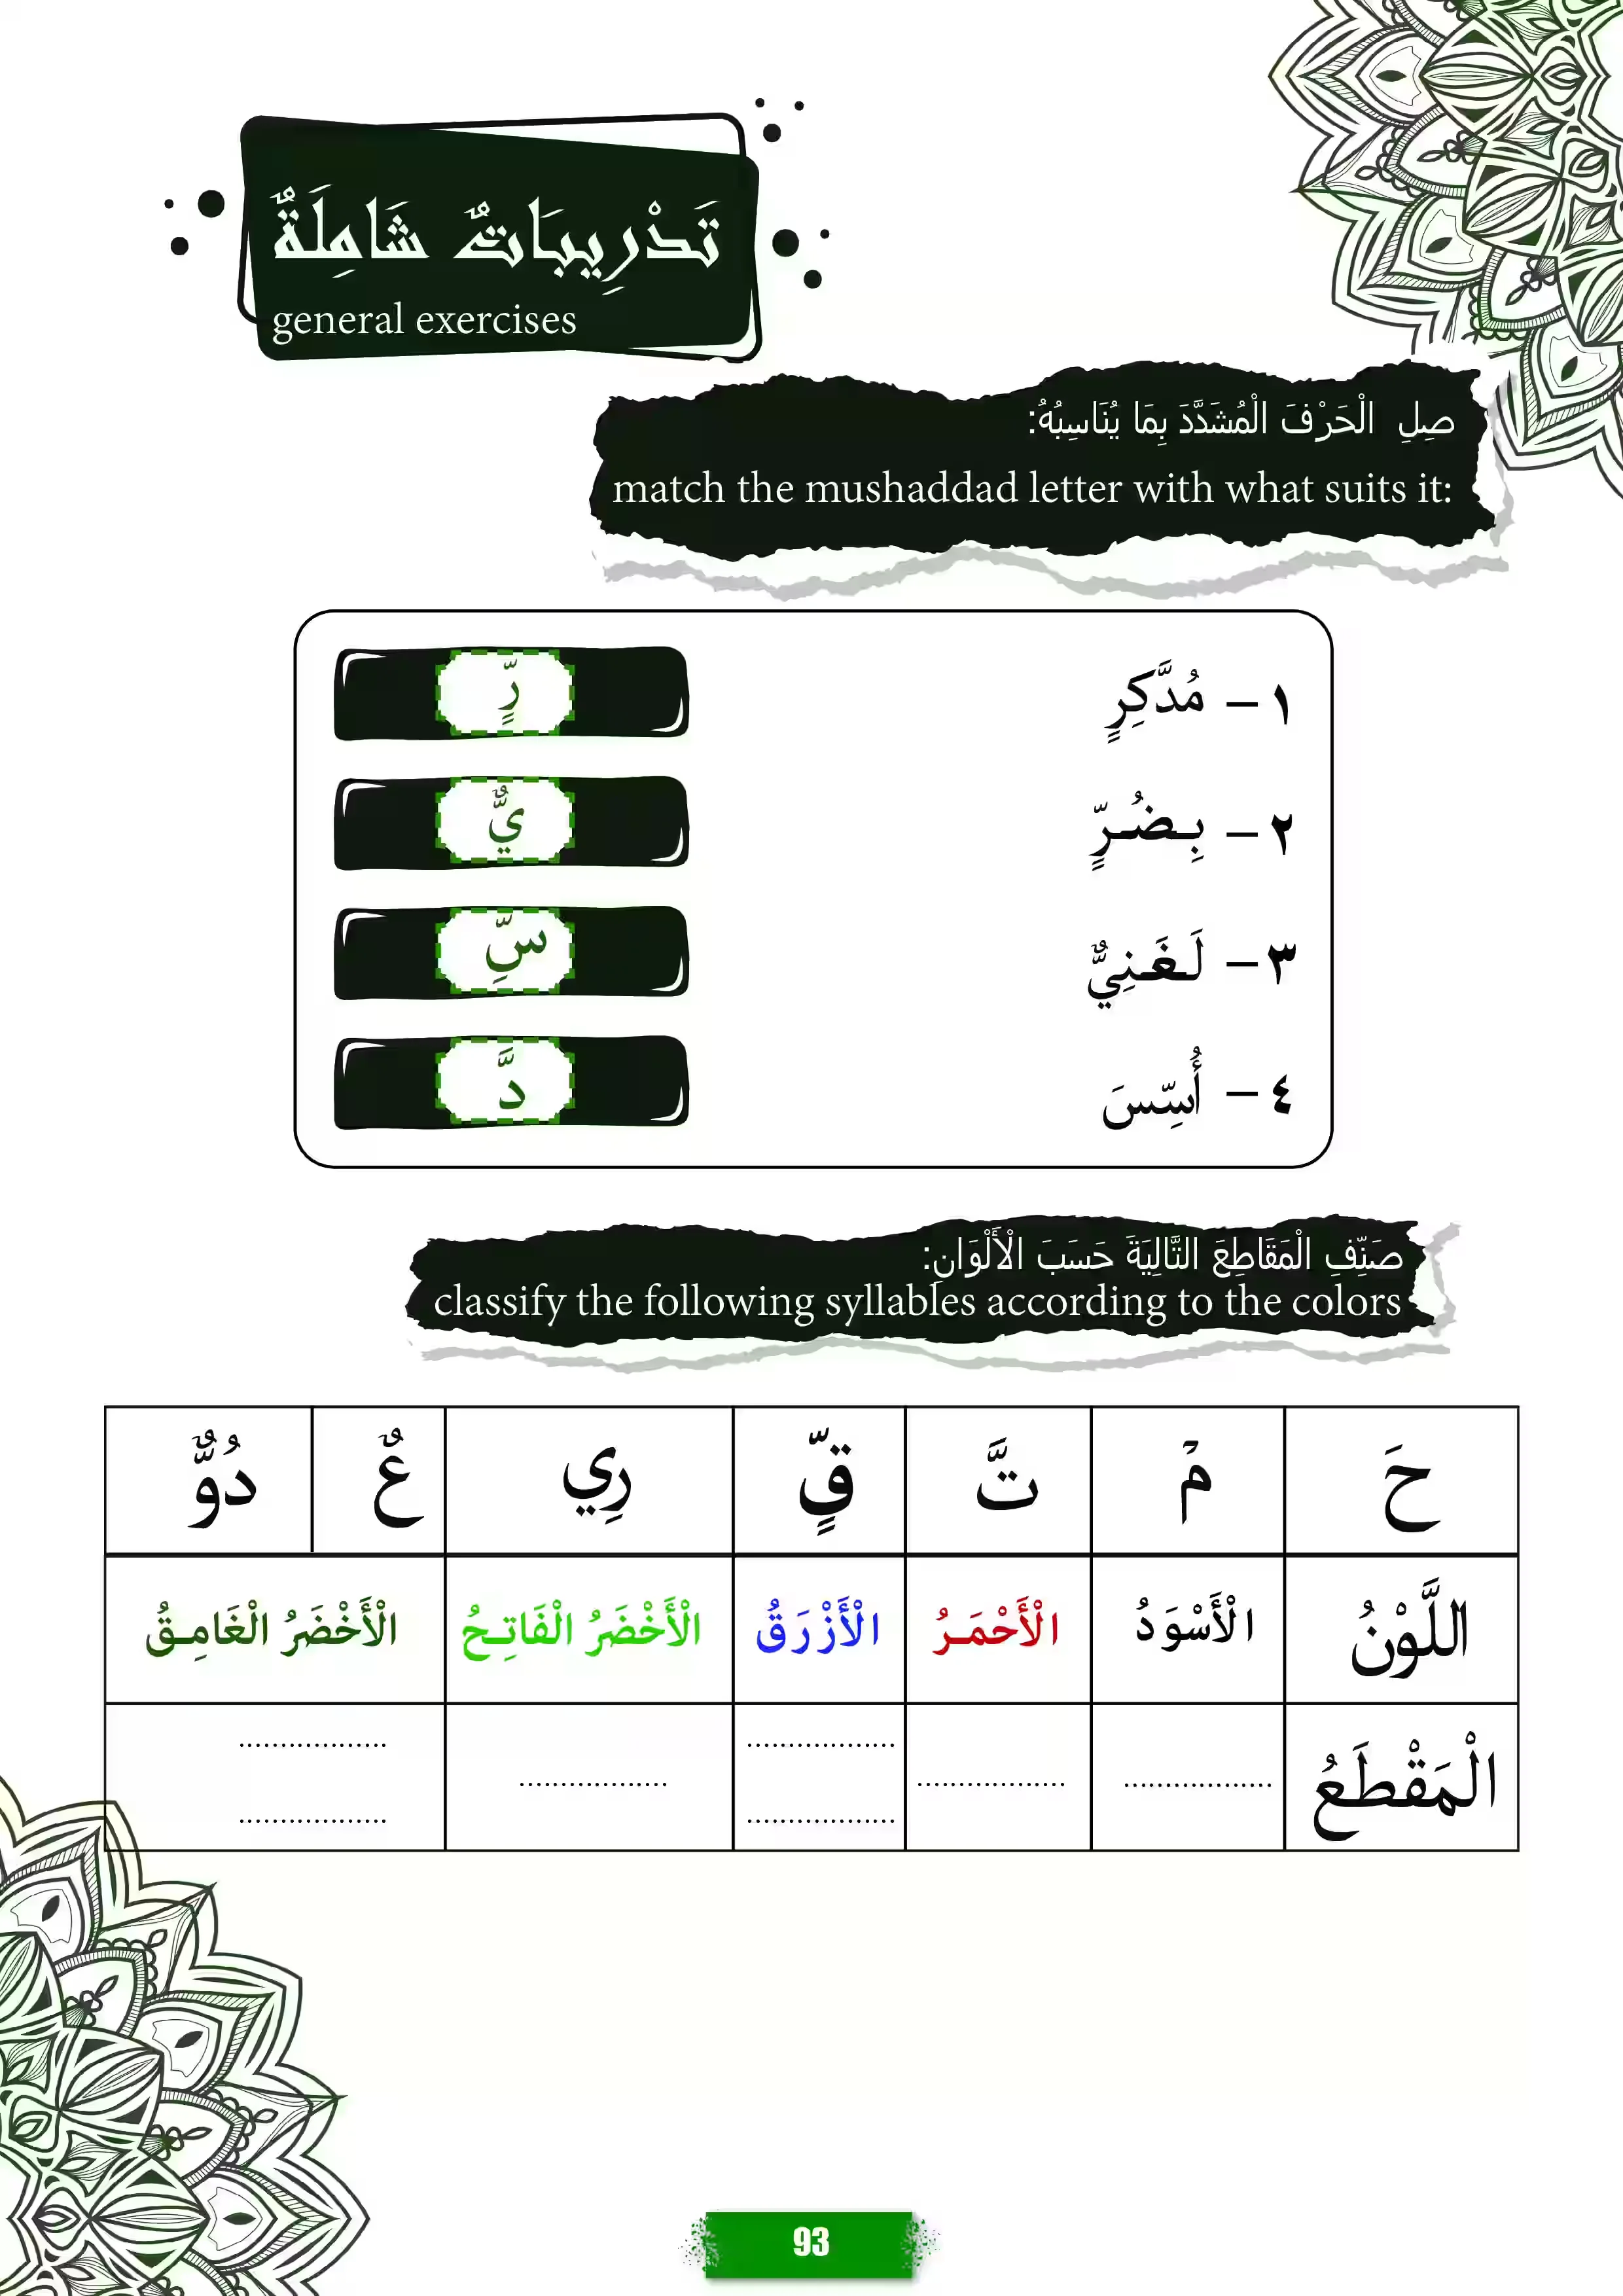 تَدْرِيبَاتٌ شَامِلَةٌ
general exercises
صِلِ الْحَرْفَ الْمُشَدَّدَ بِمَا يُنَاسِبُهُ:
match the mushaddad letter with what suits it:
١ – مُدَّكِرٍ رٍّ
٢ – بِـضُـرٍّ يٌّ
٣ – لَـغَـنِيٌّ سِّ
٤ – أُسِّسَ دَّ
صَنِّفِ الْمَقَاطِعَ التَّالِيَةَ حَسَبَ الْأَلْوَانِ:
classify the following syllables according to the colors
حَ مْ تَّ قٍّ رِي عٌ دُوٌّ
اللَّوْنُ الْأَسْوَدُ الْأَحْمَـرُ الْأَزْرَقُ الْأَخْضَرُ الْفَاتِـحُ الْأَخْضَرُ الْغَامِـقُ
الْمَقْطَعُ .................. .................. .................. .................. .................. .................. ..................
93